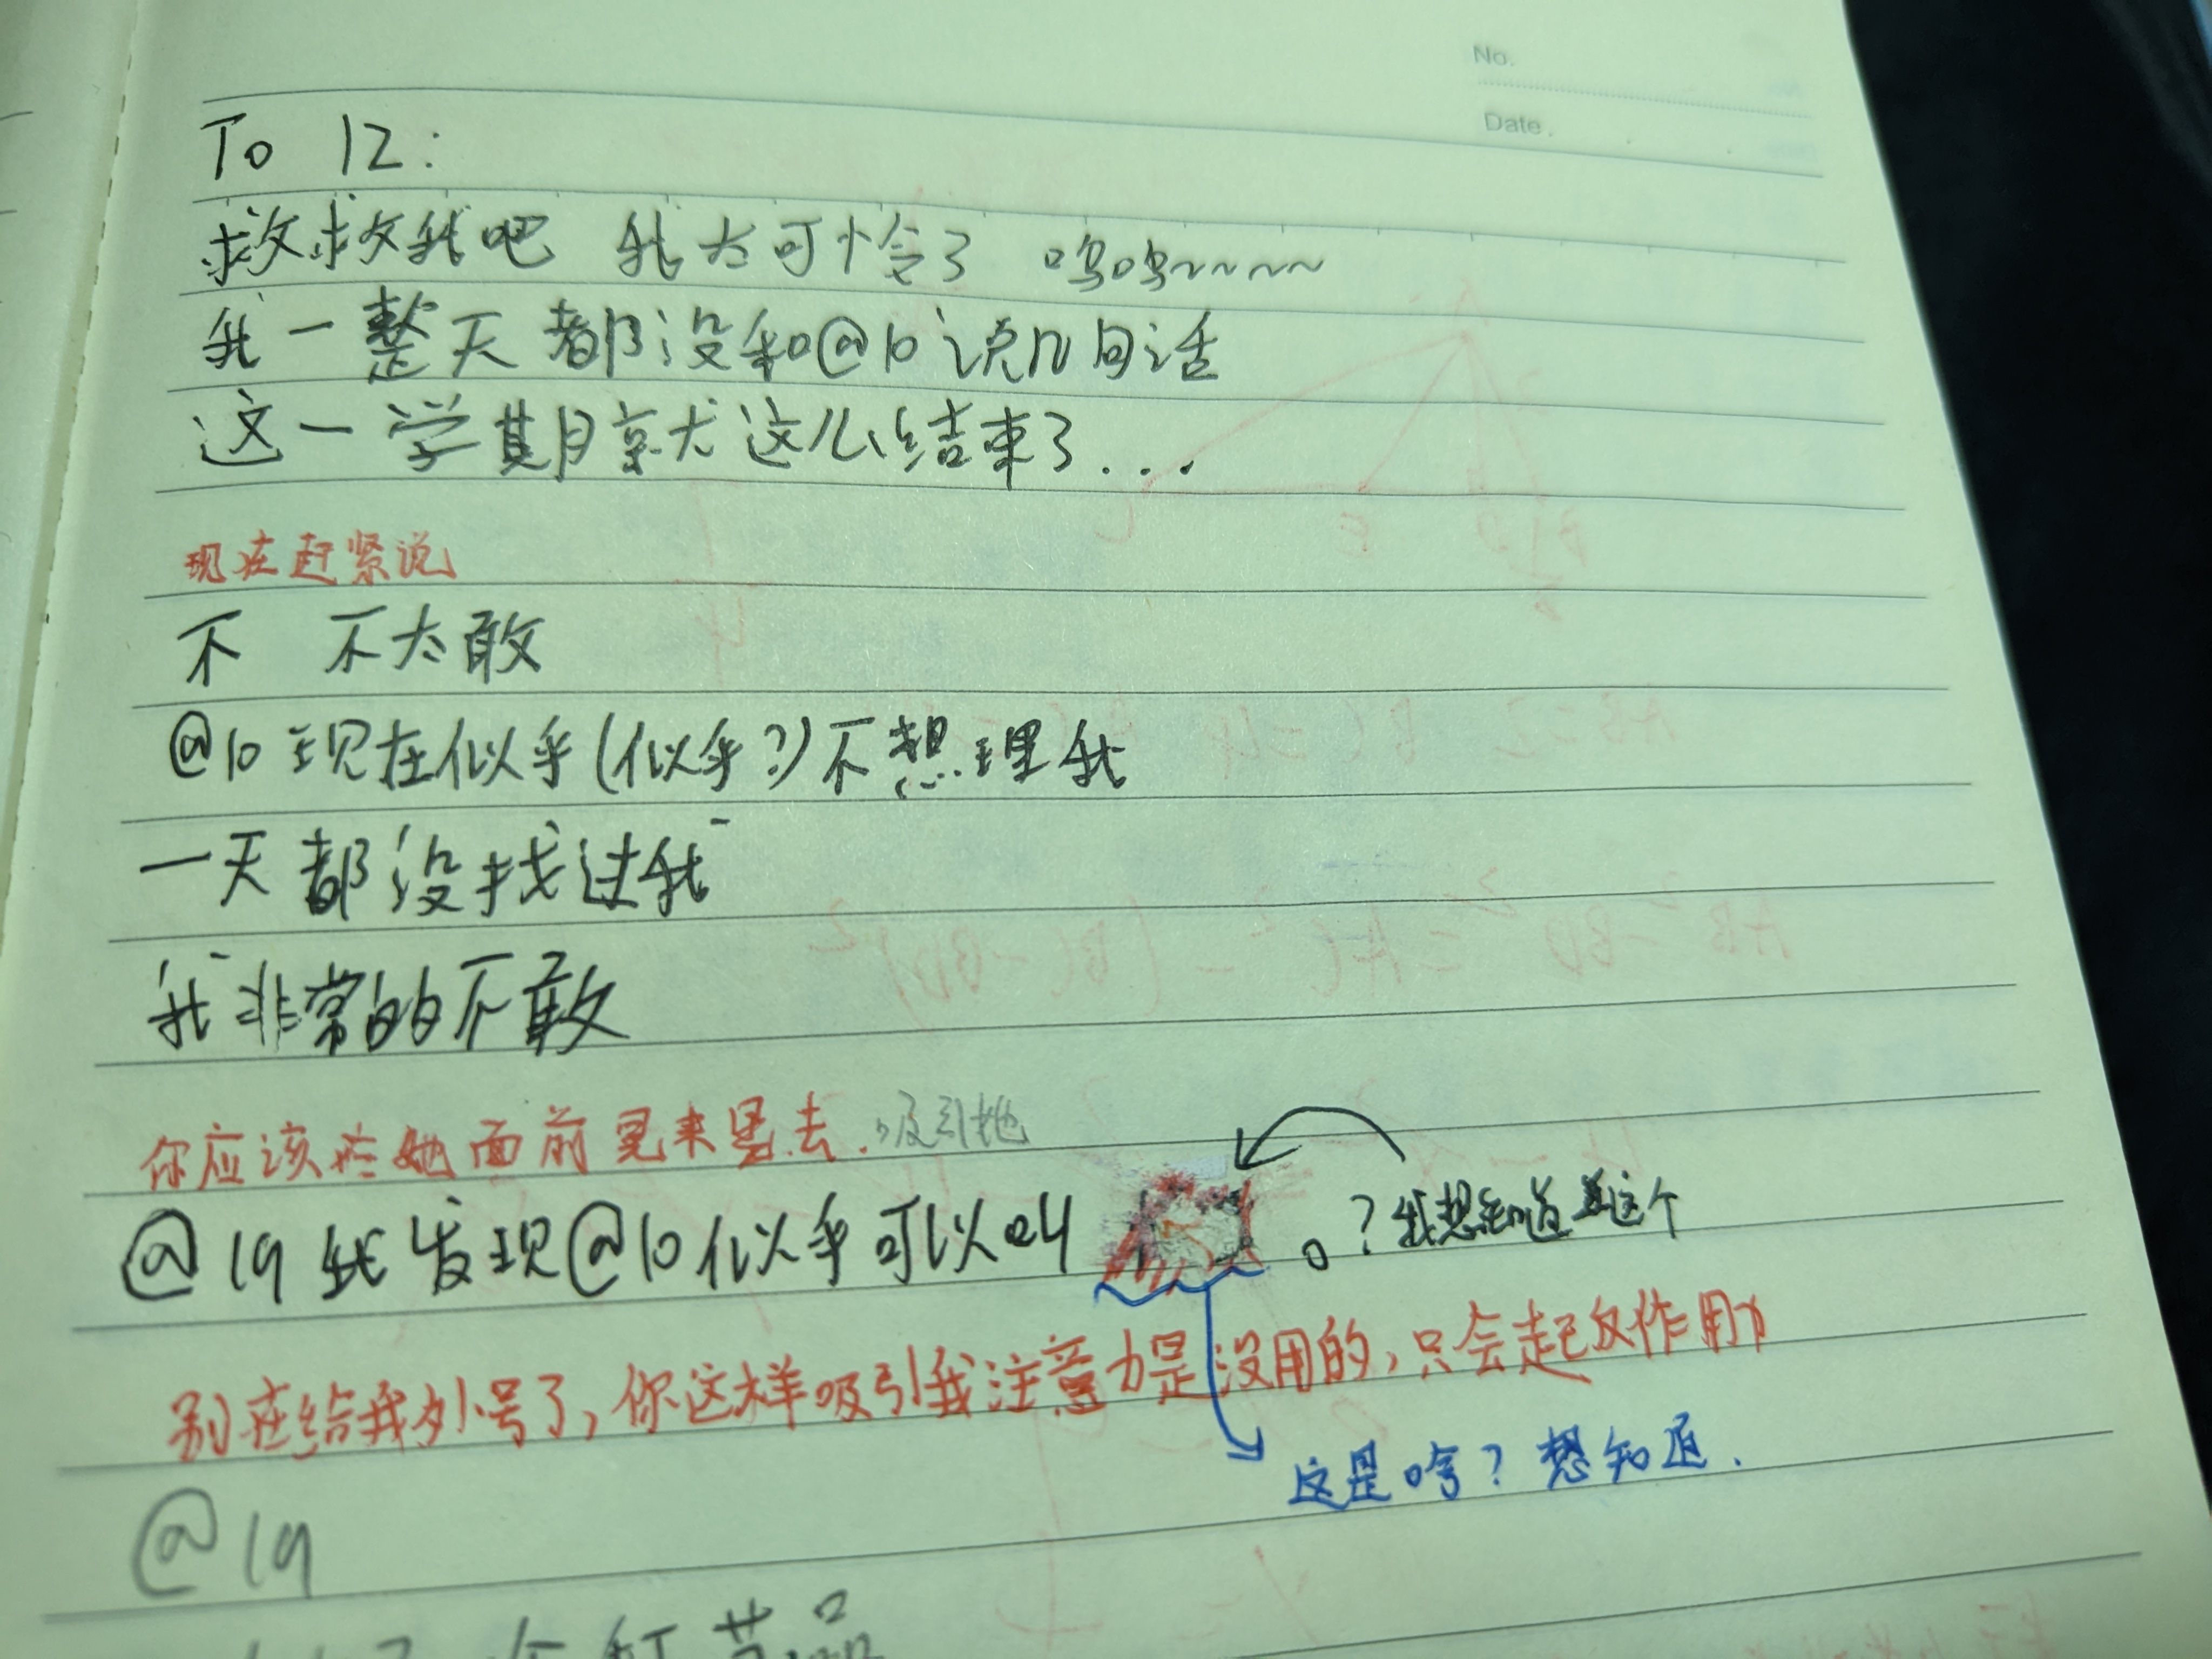 No.
Date.
To 12:
救救我吧 我太可怜了 呜呜~~~~
我一整天都没和@10说几句话
这一学期就这么结束了...
现在赶紧说
不 不太敢
@10现在似乎(似乎?)不想理我
一天都没找过我
我非常的不敢
你应该在她面前晃来晃去.吸引她
@19我发现@10似乎可以叫 。?我想知道这个
别在给我外号了,你这样吸引我注意力是没用的,只会起反作用
这是啥?想知道.
@19